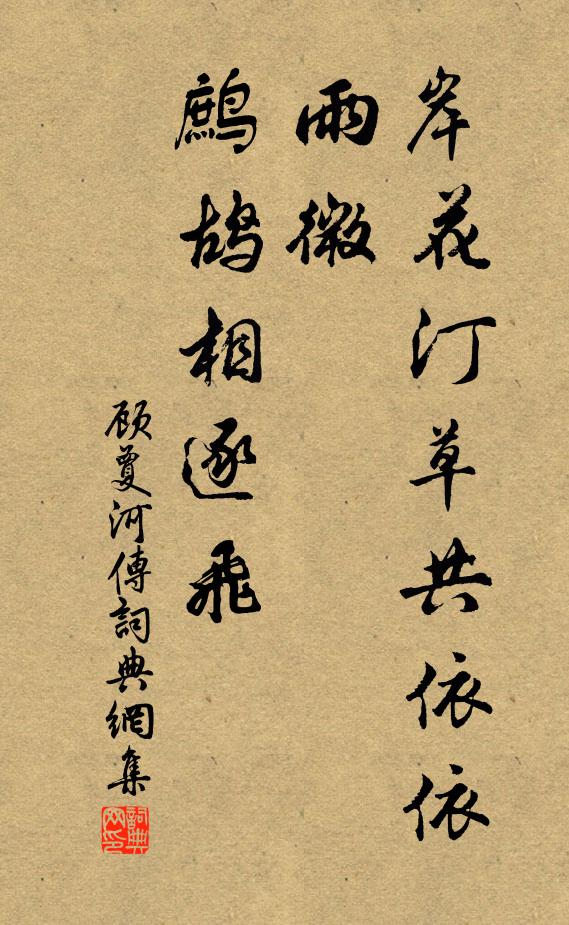 岸花汀草共依依
雨微
鷓鴣相逐飛
顧敻河傳詞典網集
詞典网印